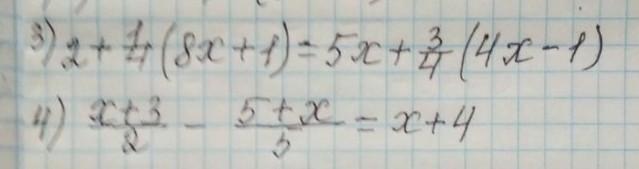 3) 2 + 1/4 (8x + 1) = 5x + 3/4 (4x - 1)
4) (x + 3)/2 - (5 + x)/5 = x + 4